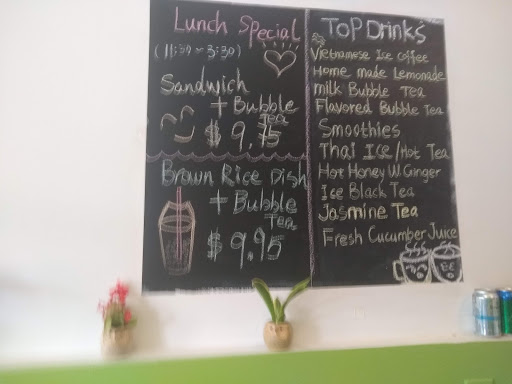 Lunch Special
(11:30 ~ 3:30)
Sandwich
+ Bubble
Tea
$ 9.75
Brown Rice Dish
+ Bubble
Tea
$ 9.95
Top Drinks
Vietnamese Ice Coffee
Home made Lemonade
Milk Bubble Tea
Flavored Bubble Tea
Smoothies
Thai ICE/Hot Tea
Hot Honey W. Ginger
Ice Black Tea
Jasmine Tea
Fresh Cucumber Juice